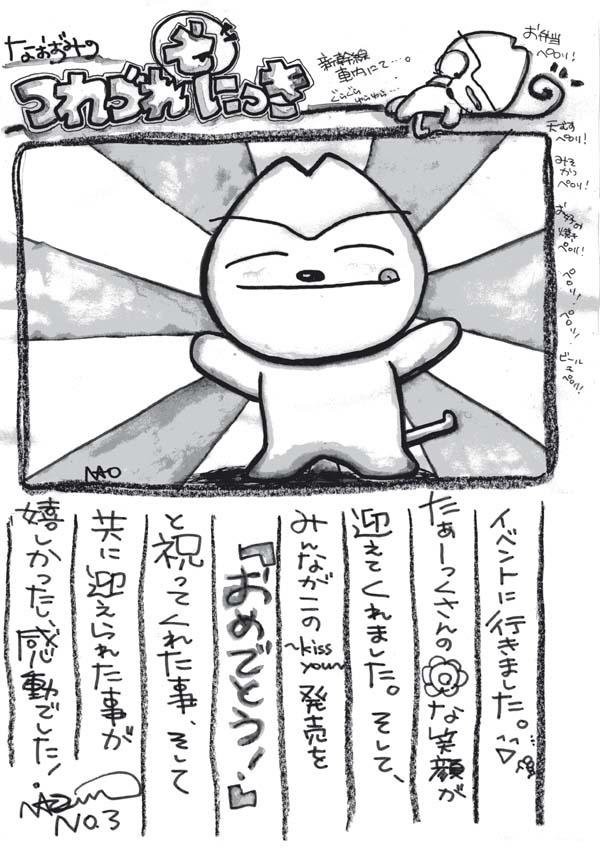 なおずみの
つれづれ
ぜ
にっき
新幹線
車内にて…。
ぐらぐら
ゆらゆら…
お弁当
ペロリ!
天むす
ペロリ!
みそ
かつ
ペロリ!
お好み
焼き
ペロリ!
ペロリ!
ペロリ!
ビール
も
ペロリ!
NAO
イベントに行きました。
たぁーっくさんの な笑顔が
迎えてくれました。そして、
みんながこの ~kiss you~ 発売を
『おめでとう!』
と祝ってくれた事、そして
共に迎えられた事が
嬉しかったし、感動でした!
NO.3